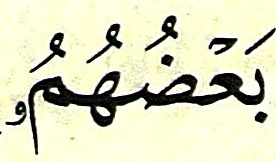 بَعْضُهُمُۥ